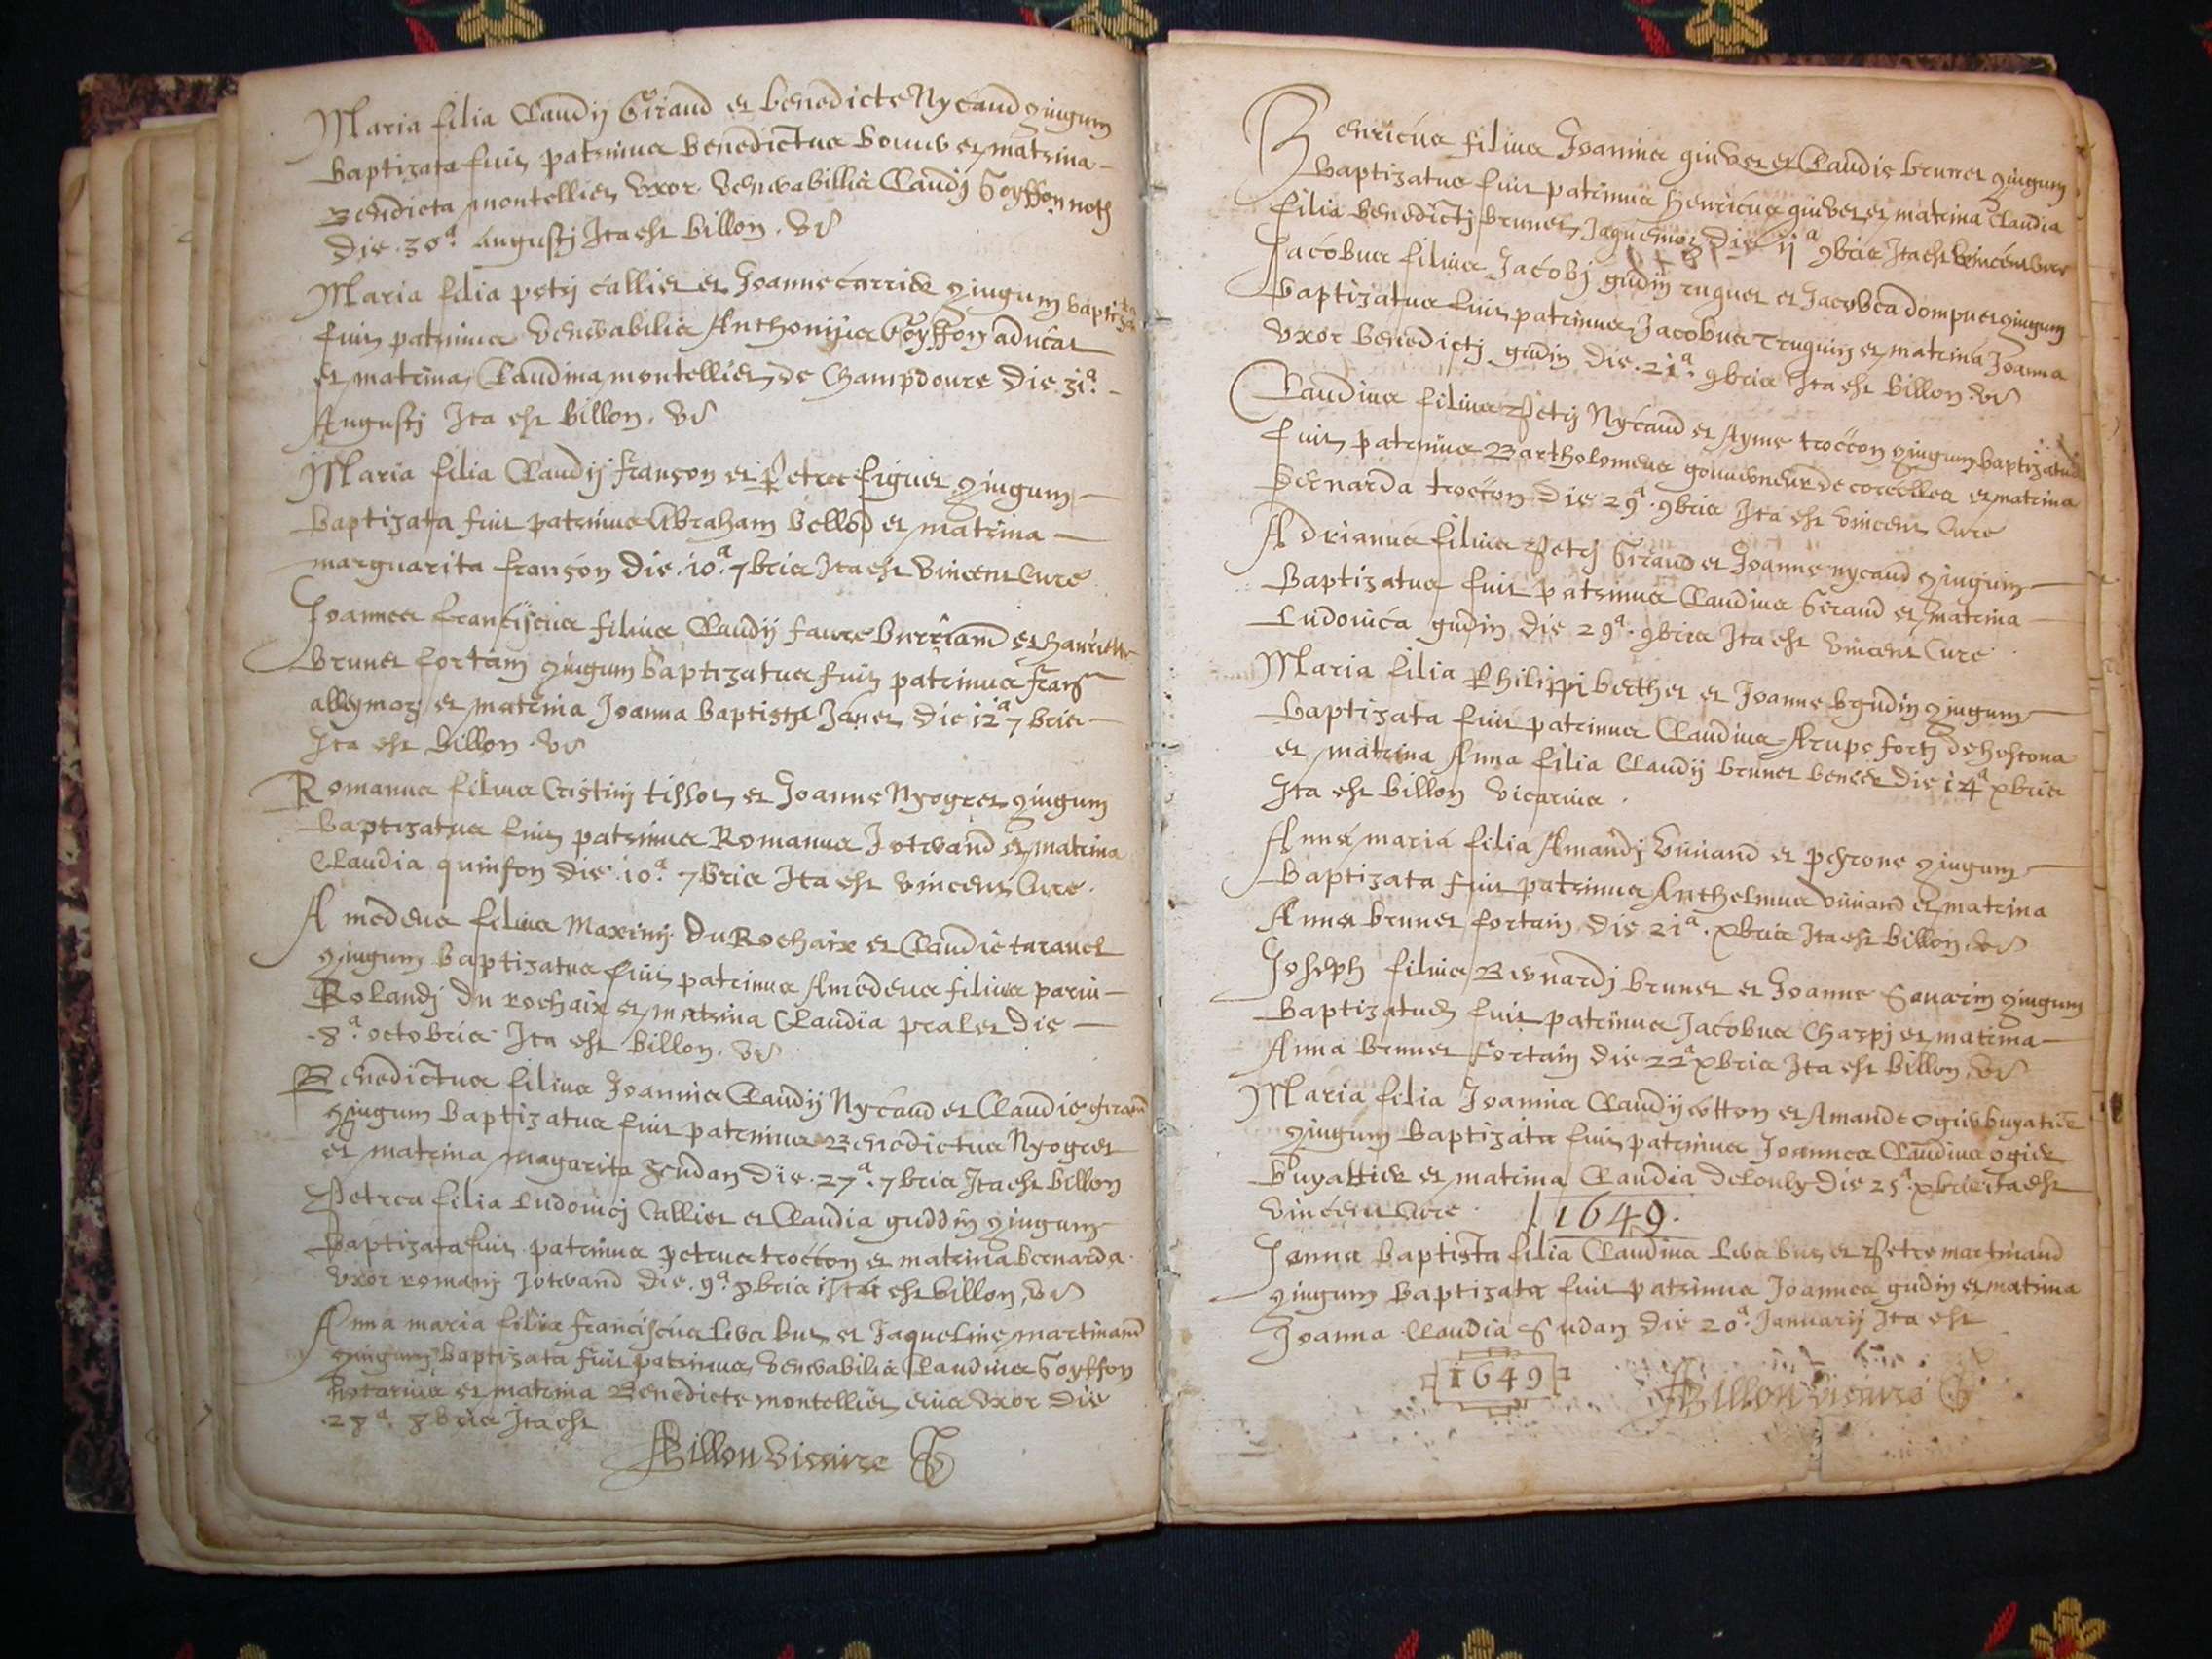 Maria filia Claudij Giraud et benedicte Nycaud 9iugum
baptizata fuit patrinus benedictus bouue et matrina
Benedicta montellier uxor venerabillis Claudij Goyffon not
die 30a augustj Ita est billon. vic
Maria filia petrj callier et Joanne carrier 9iugum baptizata
fuit patrinus venerabilis Anthonius Goyffon aducat
et matrina Claudina montellier de Champdoure die 31a
Augustj Ita est billon. vic
Maria filia Claudij françon et Petree figuet 9iugum
baptizata fuit patrinus Abraham bellod et matrina
marguarita françon die 10a 7bris Ita est vincent cure
Joannes franciscus filius Claudij faure burriand et hanriette
brunet fortain 9iugum baptizatus fuit patrinus frans
alleymoz et matrina Joanna baptista Janet die 12a 7bris
Ita est billon. vic
Romanus filius Cristinj tissot et Joanne Nyogret 9iugum
baptizatus fuit patrinus Romanus Joterand et matrina
Claudia quinson die 10a 7bris Ita est vincent cure.
Amedeus filius Maximj du Rochaix et Claudie taravel
9iugum baptizatus fuit patrinus Amedeus filius
Rolandj du rochaix et matrina Claudia pralet die
8a octobris Ita est billon. vic
Benedictus filius Joannis Claudij Nycaud et Claudie giraud
9iugum baptizatus fuit patrinus Benedictus Nyogret
et matrina magarita Jeudan die 27a 7bris Ita est billon
Petrea filia Ludovicj Callier et Claudia guddin 9iugum
baptizata fuit patrinus petrus trocton et matrina bernarda
uxor romanj Joterand die 9a 8bris ista est billon, vic
Anna maria filia franciscus leva but et Jaqueline martinand
9iugum baptizata fuit patrinus venerabilis Claudius Goyffon
notarius et matrina Benedicte montellier eius uxor die
28a 8bris Ita est
Billon Vicaire
Henricus filius Joannis guivet et Claudie brunet 9iugum
baptizatus fuit patrinus henricus guivet et matrina Claudia
filia benedictj brunet Jaquemoz die ij a 9bris Ita est vincent cure
Jacobus filius Jacobj gudin ruguet et Jacobea dompuet 9iugum
baptizatus fuit patrinus Jacobus Truguin et matrina Joanna
uxor benedictj gudin die 21a 9bris Ita est billon. vic
Claudius filius Petrj Nycaud et Ayme trocton 9iugum baptizatus
fuit patrinus Bartholomeus gouuerneur de corcelles et matrina
bernarda trocton die 29a 9bris Ita est vincent cure
Adrianus filius Petrj Giraud et Joanne nycaud 9iugum
baptizatus fuit patrinus Claudius Giraud et matrina
Ludovica gudin die 29a 9bris Ita est vincent cure
Maria filia Philippi berthet et Joanne bgudin 9iugum
baptizata fuit patrinus Claudius Arupe fortj
et matrina Anna filia Claudij brunet die 14a xbris
Ita est billon vicarius.
Anna maria filia Amandj vuiand et perone 9iugum
baptizata fuit patrinus Anthelmus vuiand et matrina
Anna brunet fortain die 21a xbris Ita est billon, vic
Joseph filius Bernardj brunet et Joanne Savarin 9iugum
baptizatus fuit patrinus Jacobus Charpj et matrina
Anna brunet fortain die 22a xbris Ita est billon, vic
Maria filia Joannis Claudij cotton et Amande ogier buyatier
9iugum baptizata fuit patrinus Joannes Claudius ogier
buyattier et matrina Claudia delouly die 25a xbris ita est
vincent cure.
1649.
Janna baptista filia Claudius leva but et Petre martinand
9iugum baptizata fuit patrinus Joannes gudin et matrina
Joanna Claudia Sudan die 20a Januarij Ita est
1649
Billon Vicaire